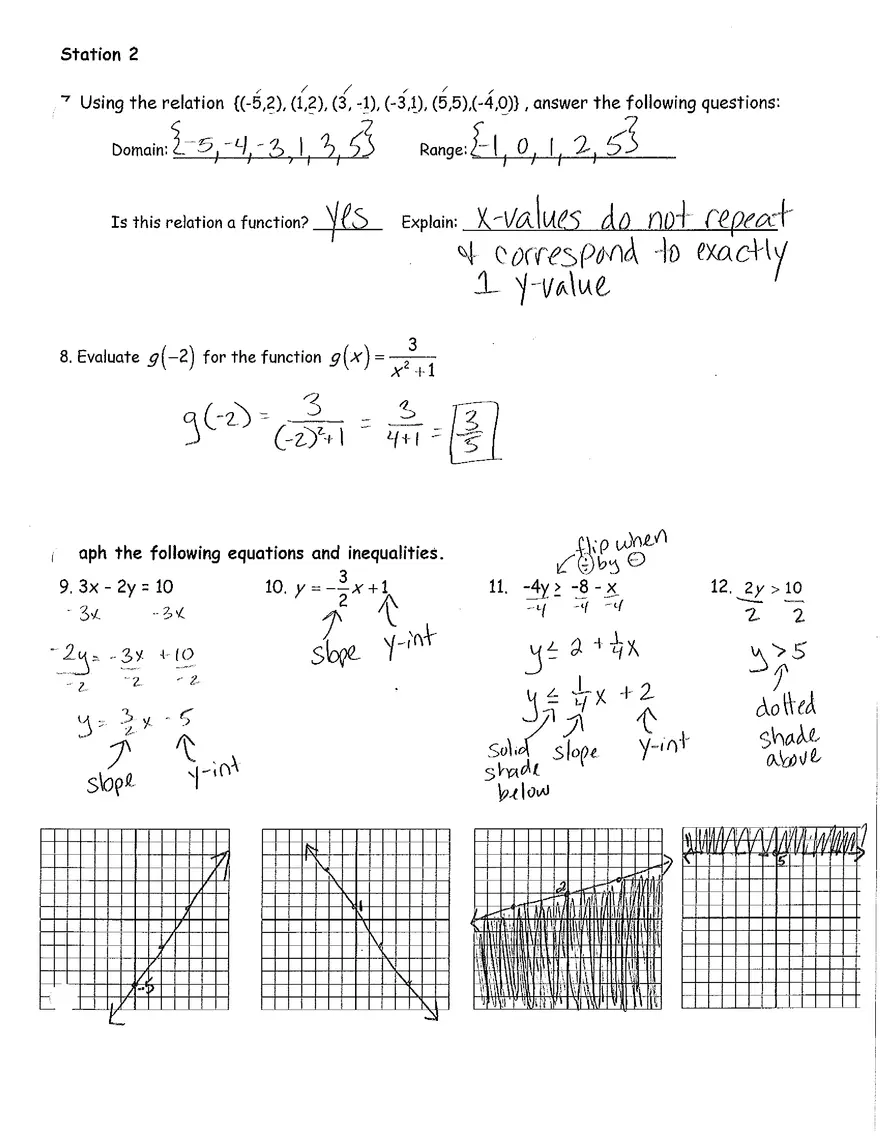 Station 2
7 Using the relation {(-5,2), (1,2), (3, -1), (-3,1), (5,5),(-4,0)} , answer the following questions:
Domain: {-5,-4,-3,1,3,5} Range: {-1, 0, 1, 2, 5}
Is this relation a function? yes Explain: x-values do not repeat
& correspond to exactly
1 y-value
8. Evaluate g(-2) for the function g(x) = 3/(x² + 1)
g(-2) = 3/((-2)²+1) = 3/(4+1) = 3/5
aph the following equations and inequalities.
flip when
÷ by ⊖
9. 3x - 2y = 10 10. y = -3/2 x + 1 11. -4y ≥ -8 - x 12. 2y > 10
-3x -3x -4 -4 -4 2 2
-2y = -3x +10 slope y-int y ≤ 2 + 1/4x y > 5
-2 -2 -2
y = 3/2 x - 5 y ≤ 1/4 x + 2 dotted
slope y-int solid slope y-int shade
shade above
below
-5 1 2 5